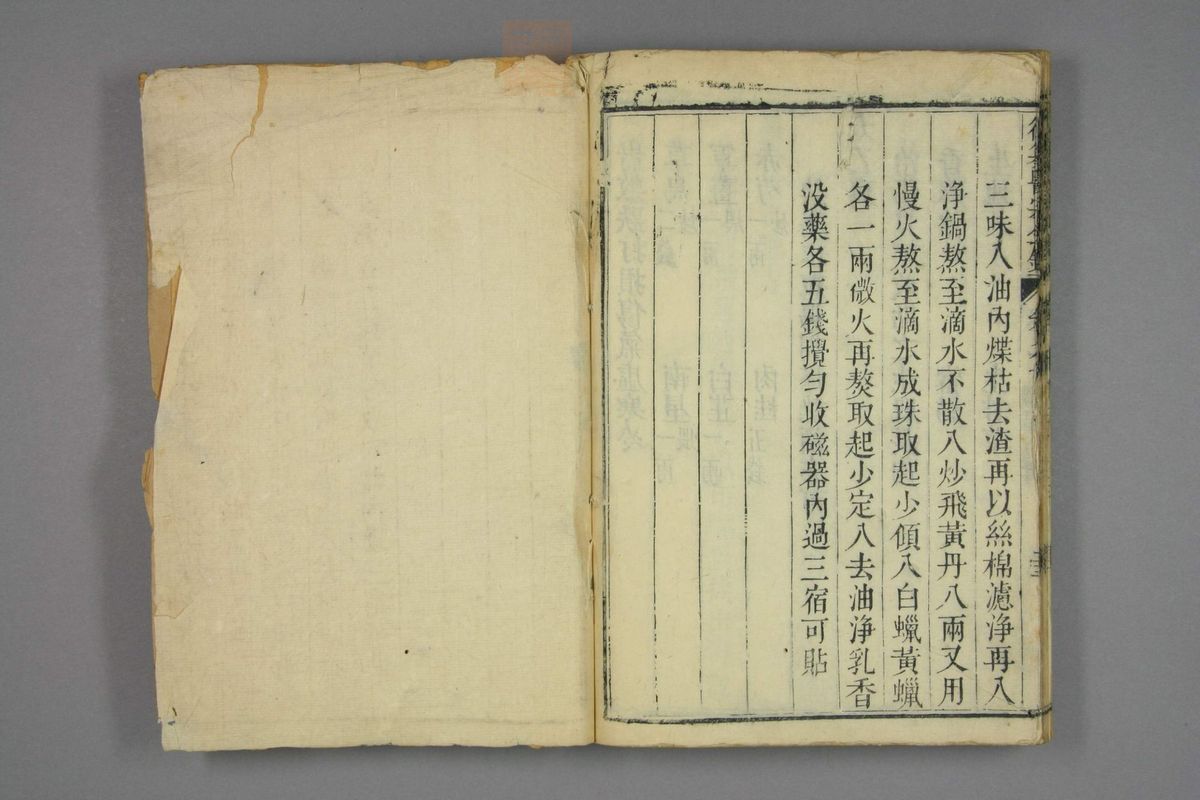 三味入油內煠枯去渣再以絲棉濾淨再入
淨鍋熬至滴水不散入炒飛黃丹八兩又用
慢火熬至滴水成珠取起少傾入白蠟黃蠟
各一兩微火再熬取起少定入去油淨乳香
没藥各五錢攪勻收磁器內過三宿可貼